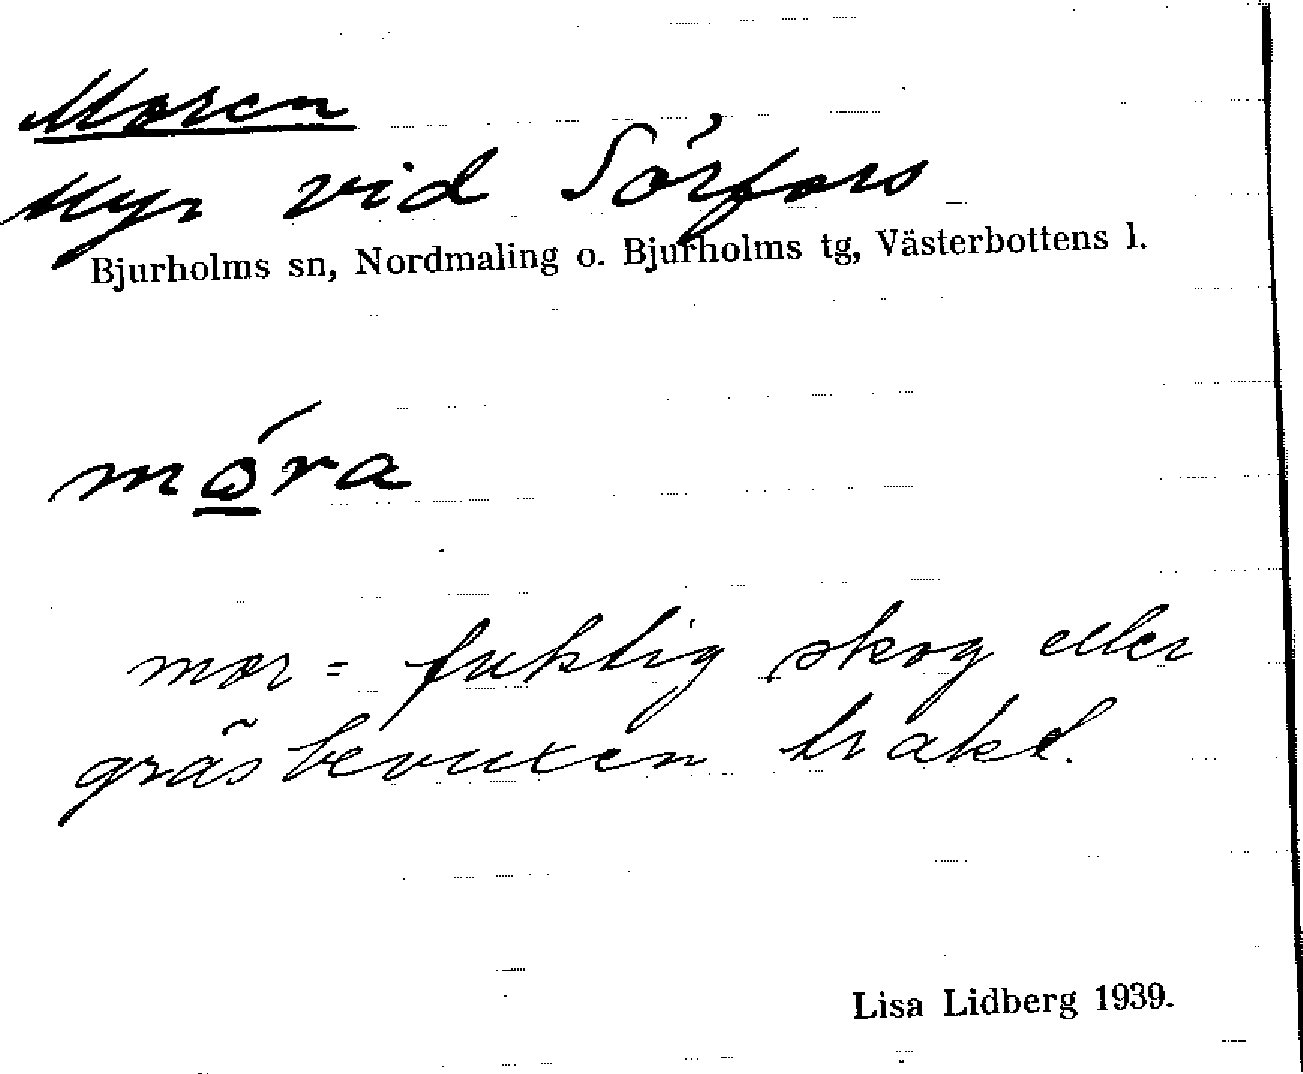 Moren
Myr vid Sörfors
Bjurholms sn, Nordmaling o. Bjurholms tg, Västerbottens l.
mó̲ra
mor = fuktig skog eller
gräsbevuxen trakt.
Lisa Lidberg 1939.